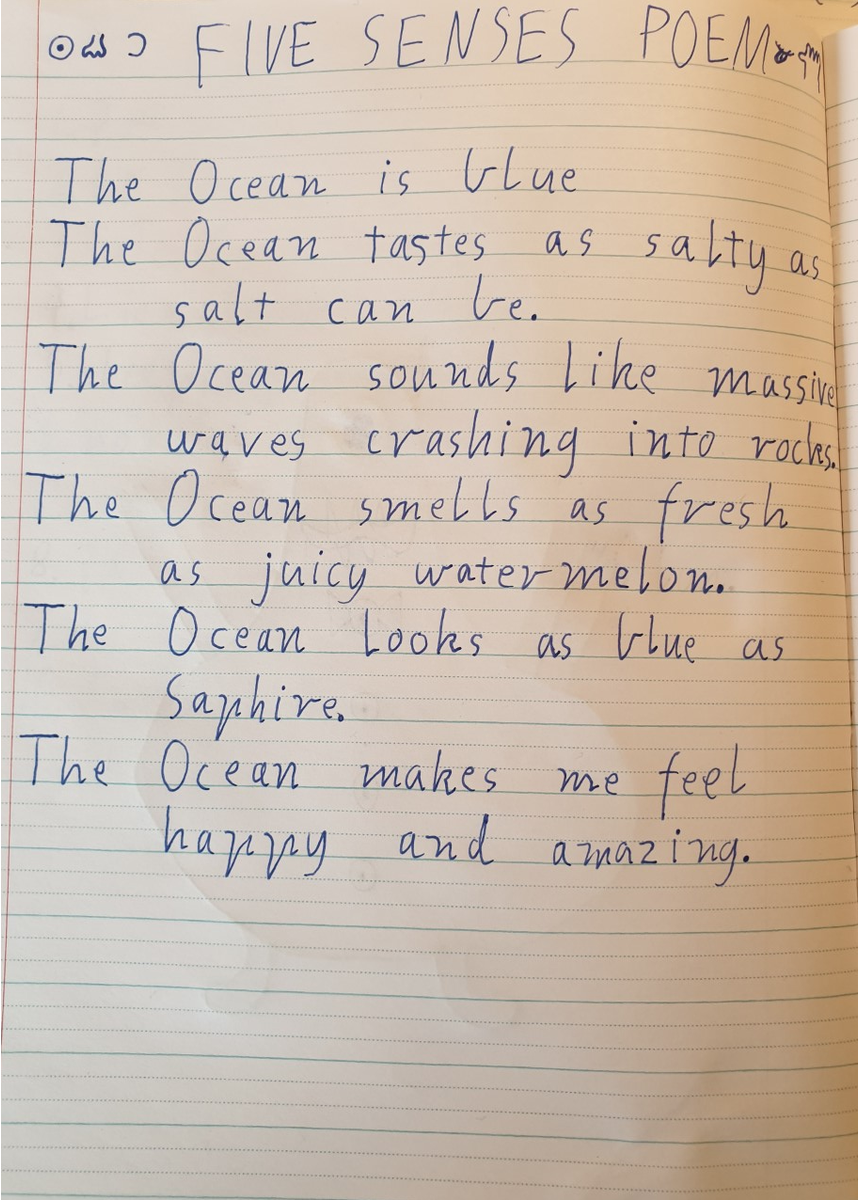 FIVE SENSES POEM
The Ocean is blue
The Ocean tastes as salty as
salt can be.
The Ocean sounds like massive
waves crashing into rocks.
The Ocean smells as fresh
as juicy watermelon.
The Ocean Looks as blue as
Saphire.
The Ocean makes me feel
happy and amazing.